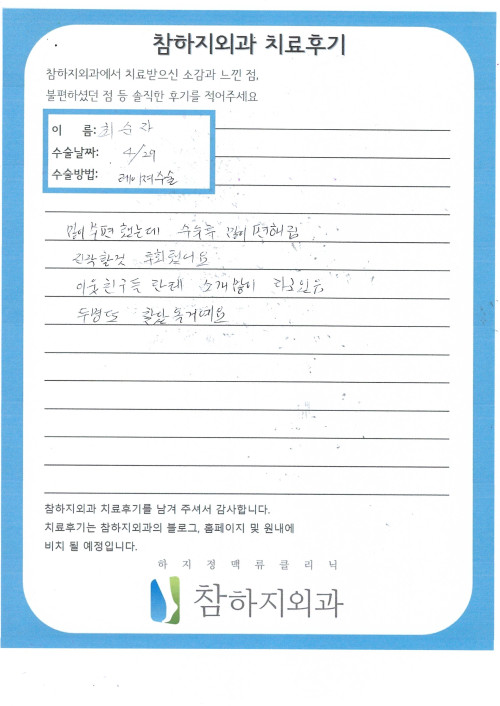 참하지외과 치료후기
참하지외과에서 치료받으신 소감과 느낀 점,
불편하셨던 점 등 솔직한 후기를 적어주세요
이 름: 최순자
수술날짜: 4/29
수술방법: 레이져수술
많이 불편했는데 수술후 많이 편해짐
진작할것 후회됬네요
이웃친구들 한테 소개많이 하고있음
두명도
참하지외과 치료후기를 남겨 주셔서 감사합니다.
치료후기는 참하지외과의 블로그, 홈페이지 및 원내에
비치 될 예정입니다.
하지정맥류클리닉
참하지외과